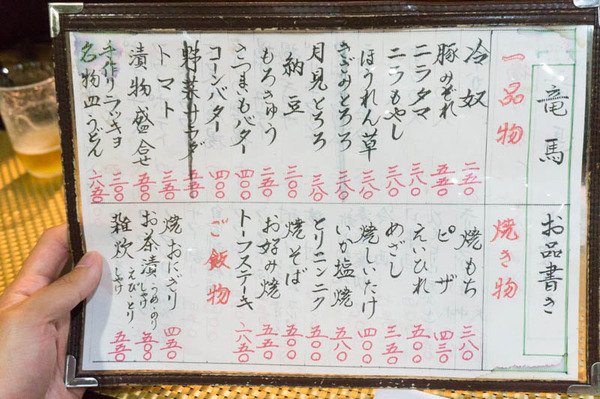 竜馬
お品書き
一品物
冷奴 二五〇
豚みぞれ 五五〇
ニラタマ 三八〇
ニラもやし 三八〇
ほうれん草 三八〇
きざみとろろ 三八〇
月見とろろ 三八〇
納豆 三〇〇
もろきゅう 二五〇
さつまいもバター 四〇〇
コーンバター 四〇〇
野菜サラダ 五五〇
トマト 三五〇
漬物盛合せ 五〇〇
手作りラッキョ 三〇〇
名物皿うどん 六五〇
焼き物
焼もち 三八〇
ピザ 四三〇
えいひれ 五〇〇
めざし 三五〇
焼しいたけ 四〇〇
いか塩焼 五八〇
とりニンニク 五〇〇
焼そば 五〇〇
お好み焼 五五〇
トーフステーキ 六五〇
ご飯物
焼おにぎり 四五〇
お茶漬 うめ のり しゃけ 五〇〇
雑炊 えび とり しゃけ 五五〇